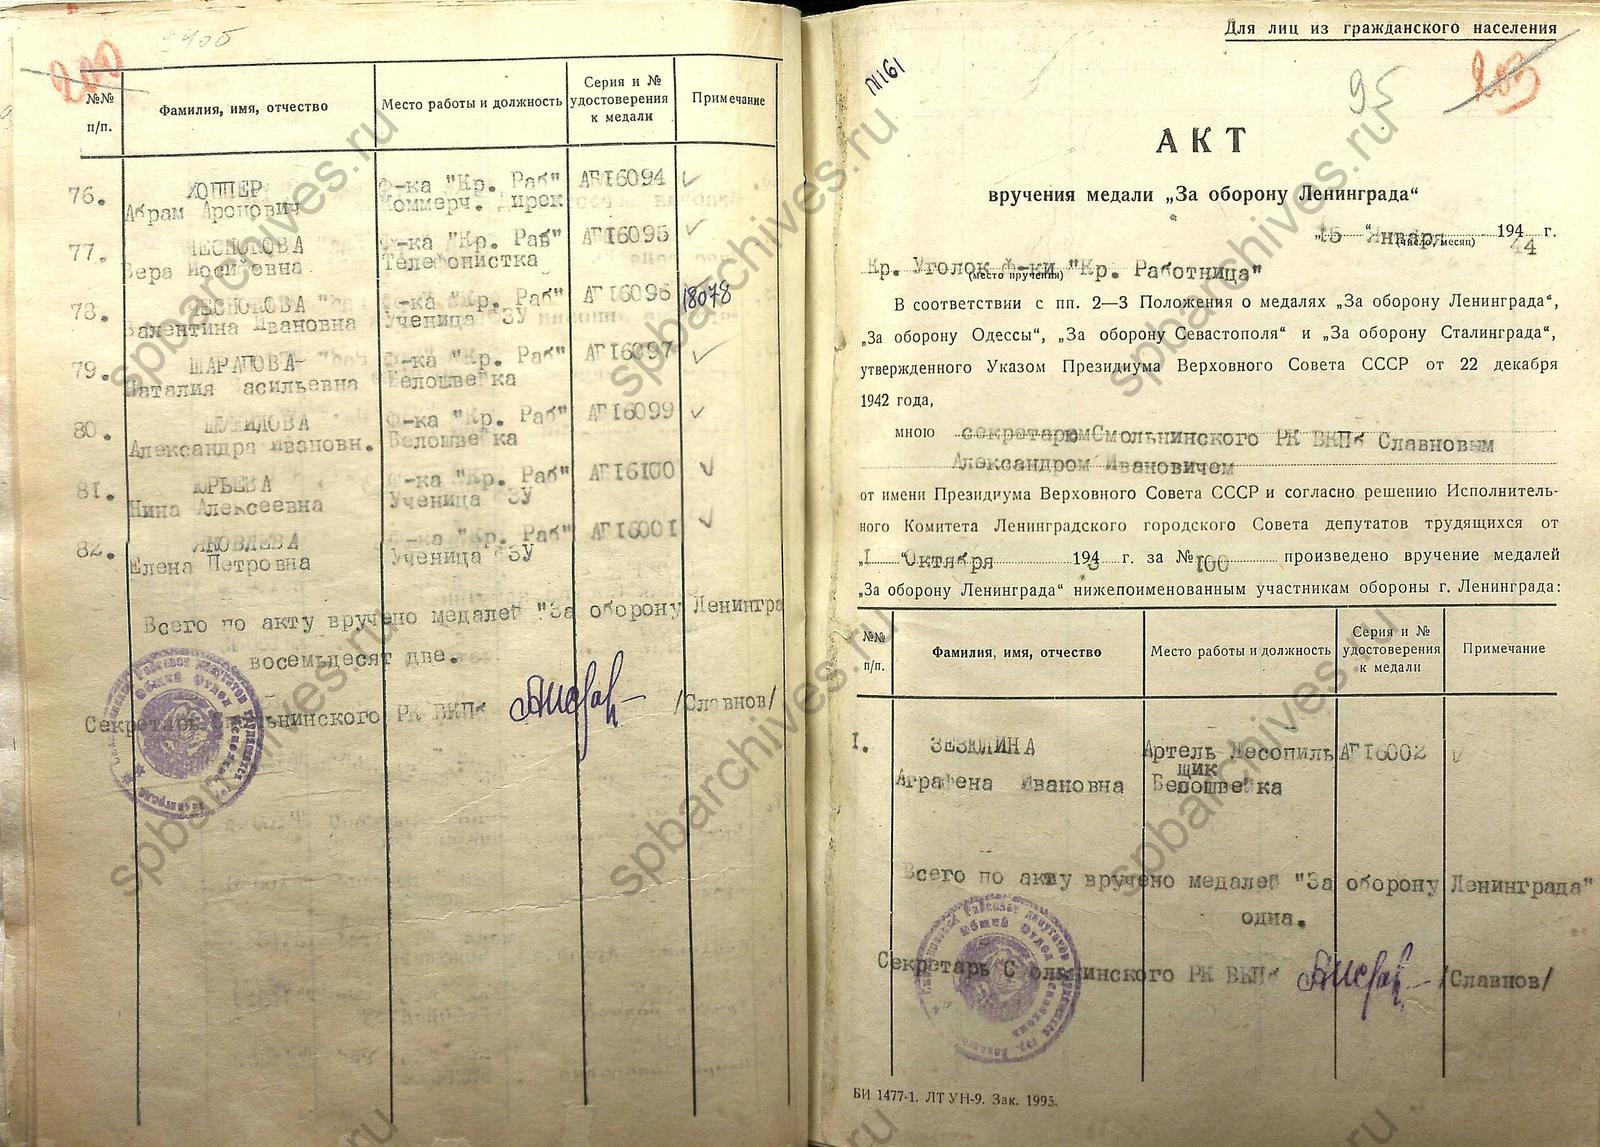 №№
п/п.
Фамилия, имя, отчество
Место работы и должность
Серия и №
удостоверения
к медали
Примечание
76. ХОППЕР Ф-ка "Кр. Раб" АГ16094
Абрам Аронович Коммерч. Дирек
77. ЧЕСНОКОВА Ф-ка "Кр. Раб" АГ16095
Вера Иосифовна Телефонистка
78. ЧЕСНОКОВА Ф-ка "Кр. Раб" АГ16096 18078
Валентина Ивановна Ученица ФЗУ
79. ШАРАПОВА Ф-ка "Кр. Раб" АГ16097
Наталия Васильевна Белошвейка
80. Ф-ка "Кр. Раб" АГ16099
Александра Ивановн. Белошвейка
81. ЮРЬЕВА Ф-ка "Кр. Раб" АГ16100
Нина Алексеевна Ученица ФЗУ
82. ЯКОВЛЕВА Ф-ка "Кр. Раб" АГ16001
Елена Петровна Ученица ФЗУ
Всего по акту вручено медалей "За оборону Ленингра
восемьдесят две.
Секретарь Смольнинского РК ВКПб /Славнов/
Для лиц из гражданского населения
П1161
95
203
АКТ
вручения медали „За оборону Ленинграда“
„15 “ Января 1944 г.
(число, месяц)
Кр. Уголок Ф-ки "Кр. Работница"
(место вручения)
В соответствии с пп. 2—3 Положения о медалях „За оборону Ленинграда“,
„За оборону Одессы“, „За оборону Севастополя“ и „За оборону Сталинграда“,
утвержденного Указом Президиума Верховного Совета СССР от 22 декабря
1942 года,
мною секретарем Смольнинского РК ВКПб Славновым
Александром Ивановичем
от имени Президиума Верховного Совета СССР и согласно решению Исполнитель-
ного Комитета Ленинградского городского Совета депутатов трудящихся от
„I “ Октября 1943 г. за № 100 произведено вручение медалей
„За оборону Ленинграда“ нижепоименованным участникам обороны г. Ленинграда:
№№
п/п.
Фамилия, имя, отчество
Место работы и должность
Серия и №
удостоверения
к медали
Примечание
I. ЗЕЗЮЛИНА Артель Лесопиль АГ16002
щик
Аграфена Ивановна Белошвейка
Всего по акту вручено медалей "За оборону Ленинграда"
одна.
Секретарь Смольнинского РК ВКПб /Славнов/
БИ 1477-1. ЛТ УН-9. Зак. 1995.
spbarchives.ru